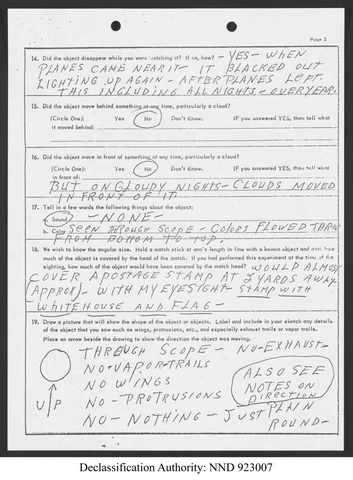 Page 3
14. Did the object disappear while you were watching it? If so, how? - YES - WHEN
PLANES CAME NEAR IT - IT BLACKED OUT
LIGHTING UP AGAIN - AFTER PLANES LEFT.
THIS INCLUDING ALL NIGHTS - OVER YEAR.
15. Did the object move behind something at any time, particularly a cloud?
(Circle One): Yes No Don't Know. IF you answered YES, then tell what
it moved behind:
16. Did the object move in front of something at any time, particularly a cloud?
(Circle One): Yes No Don't Know. IF you answered YES, then tell what
in front of:
BUT ON CLOUDY NIGHTS - CLOUDS MOVED
IN FRONT OF IT.
17. Tell in a few words the following things about the object:
Sound - NONE -
b. Color SEEN THROUGH SCOPE - COLORS FLOWED THROU
FROM BOTTOM TO TOP.
18. We wish to know the angular size. Hold a match stick at arm's length in line with a known object and note how
much of the object is covered by the head of the match. If you had performed this experiment at the time of the
sighting, how much of the object would have been covered by the match head? WOULD ALMOST
COVER A POSTAGE STAMP AT 2 YARDS AWAY
(APPROX). WITH MY EYESIGHT - STAMP WITH
WHITEHOUSE AND FLAG -
19. Draw a picture that will show the shape of the object or objects. Label and include in your sketch any details
of the object that you saw such as wings, protrusions, etc., and especially exhaust trails or vapor trails.
Place an arrow beside the drawing to show the direction the object was moving.
THROUGH SCOPE - NO-EXHAUST-
NO-VAPOR-TRAILS
NO WINGS
NO-PROTRUSIONS
NO-NOTHING - JUST PLAIN
ROUND-
UP
ALSO SEE
NOTES ON
DIRECTION
Declassification Authority: NND 923007